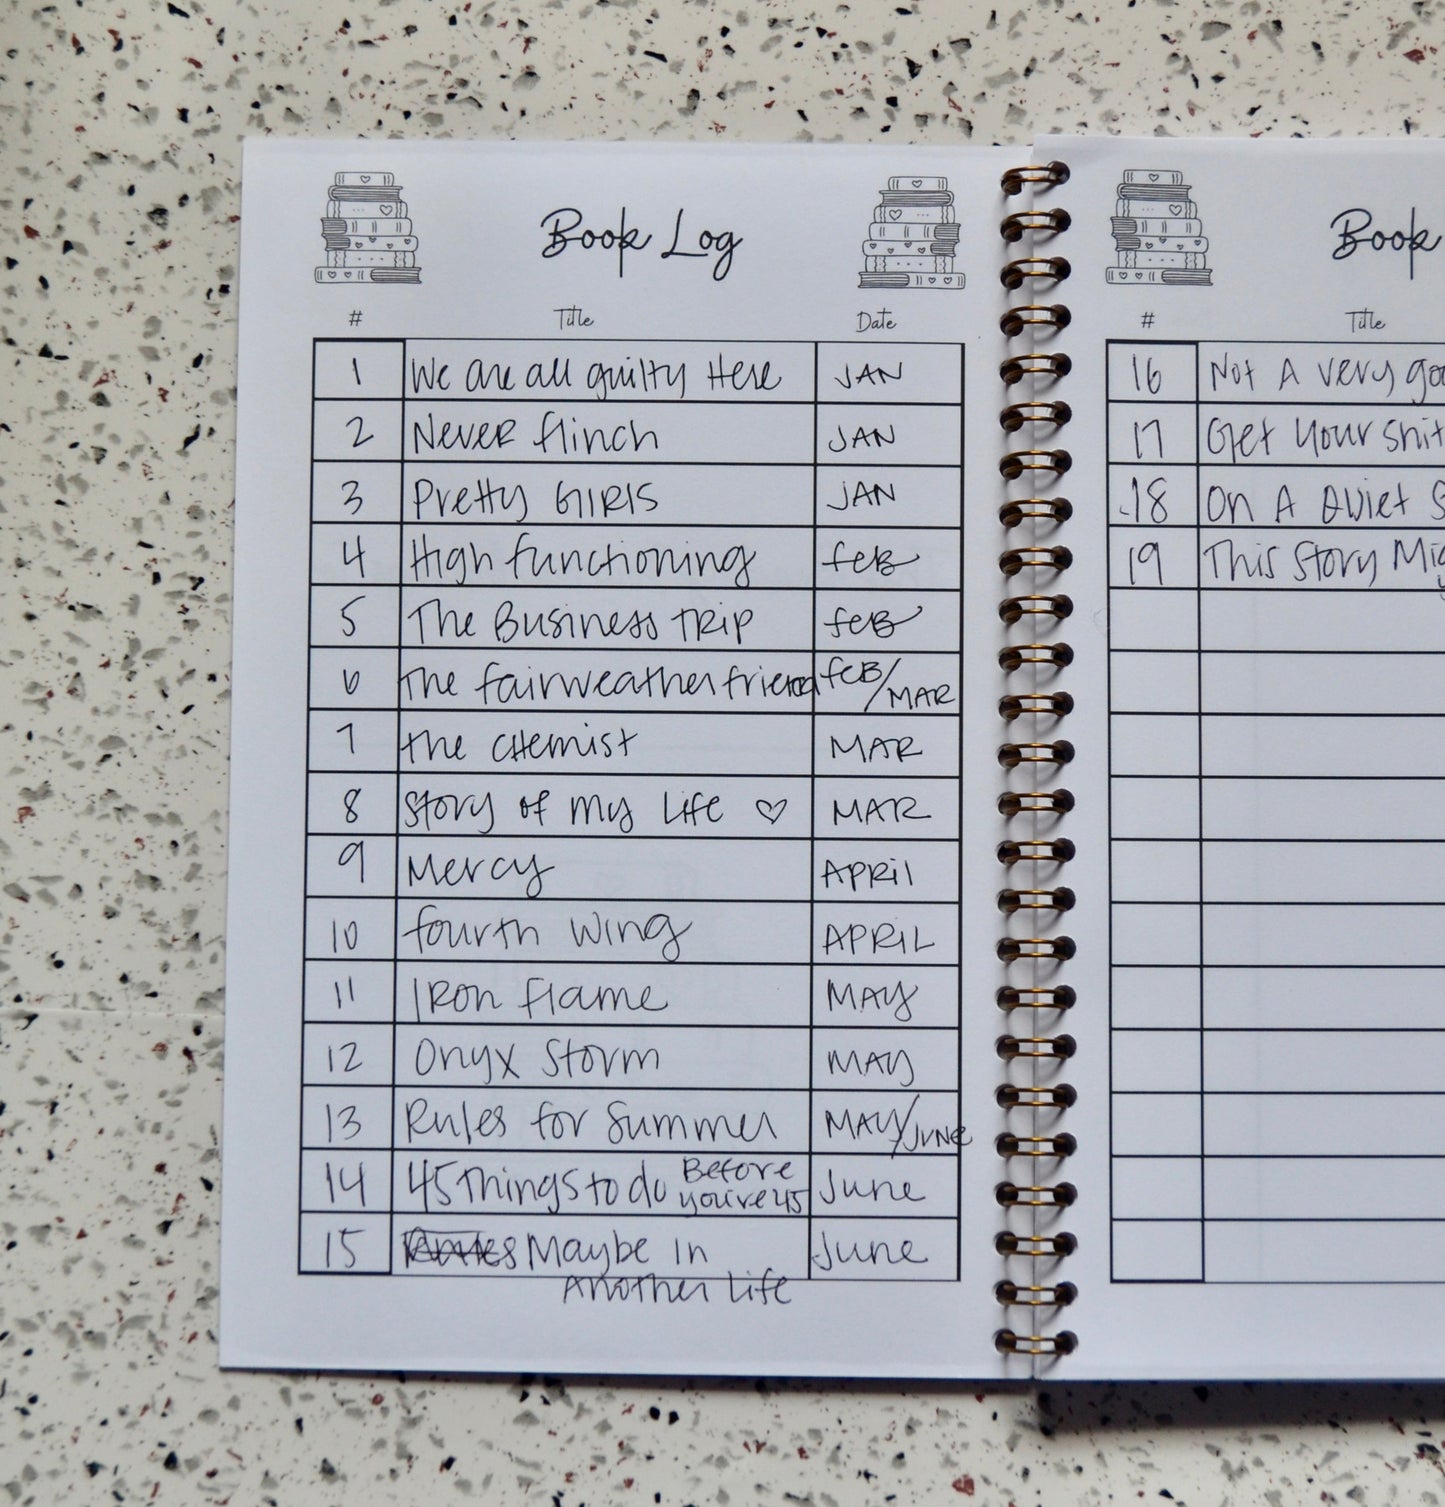 Book Log
# Title Date
1 We are all guilty Here JAN
2 Never flinch JAN
3 Pretty GIRLS JAN
4 High functioning feB
5 The Business Trip feB
6 The fairweather friend feB/MAR
7 the CHemist MAR
8 Story of my Life ♡ MAR
9 Mercy APRil
10 fourth Wing APRIL
11 IRon flame MAY
12 Onyx Storm MAY
13 Rules for Summer MAY/JUNe
14 45 Things to do Before you're 45 June
15 Maybe in June
Another Life
Book
# Title
16 Not A very
17 Get Your Shit
18 On A Quiet
19 This Story